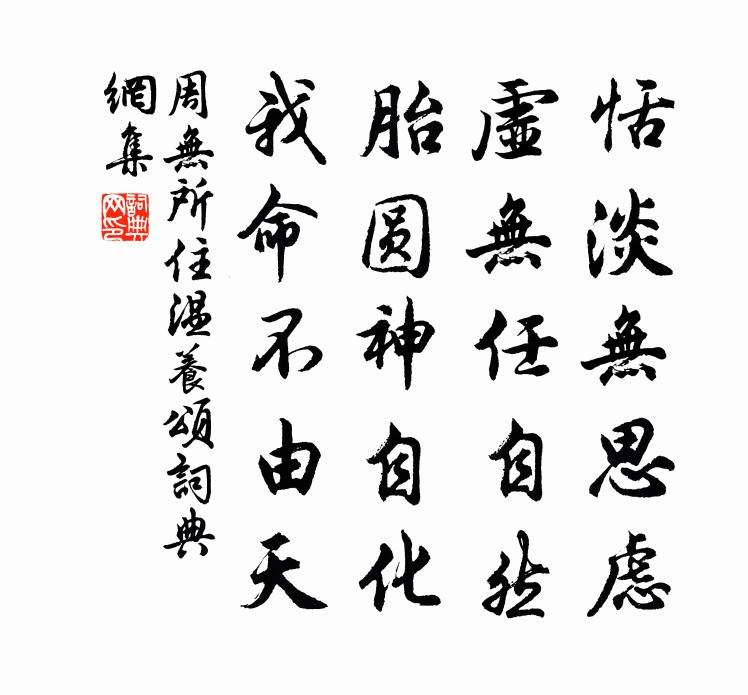 恬淡無思慮
虛無任自然
胎圓神自化
我命不由天
周無所住溫養頌詞典
網集
詞典
网印